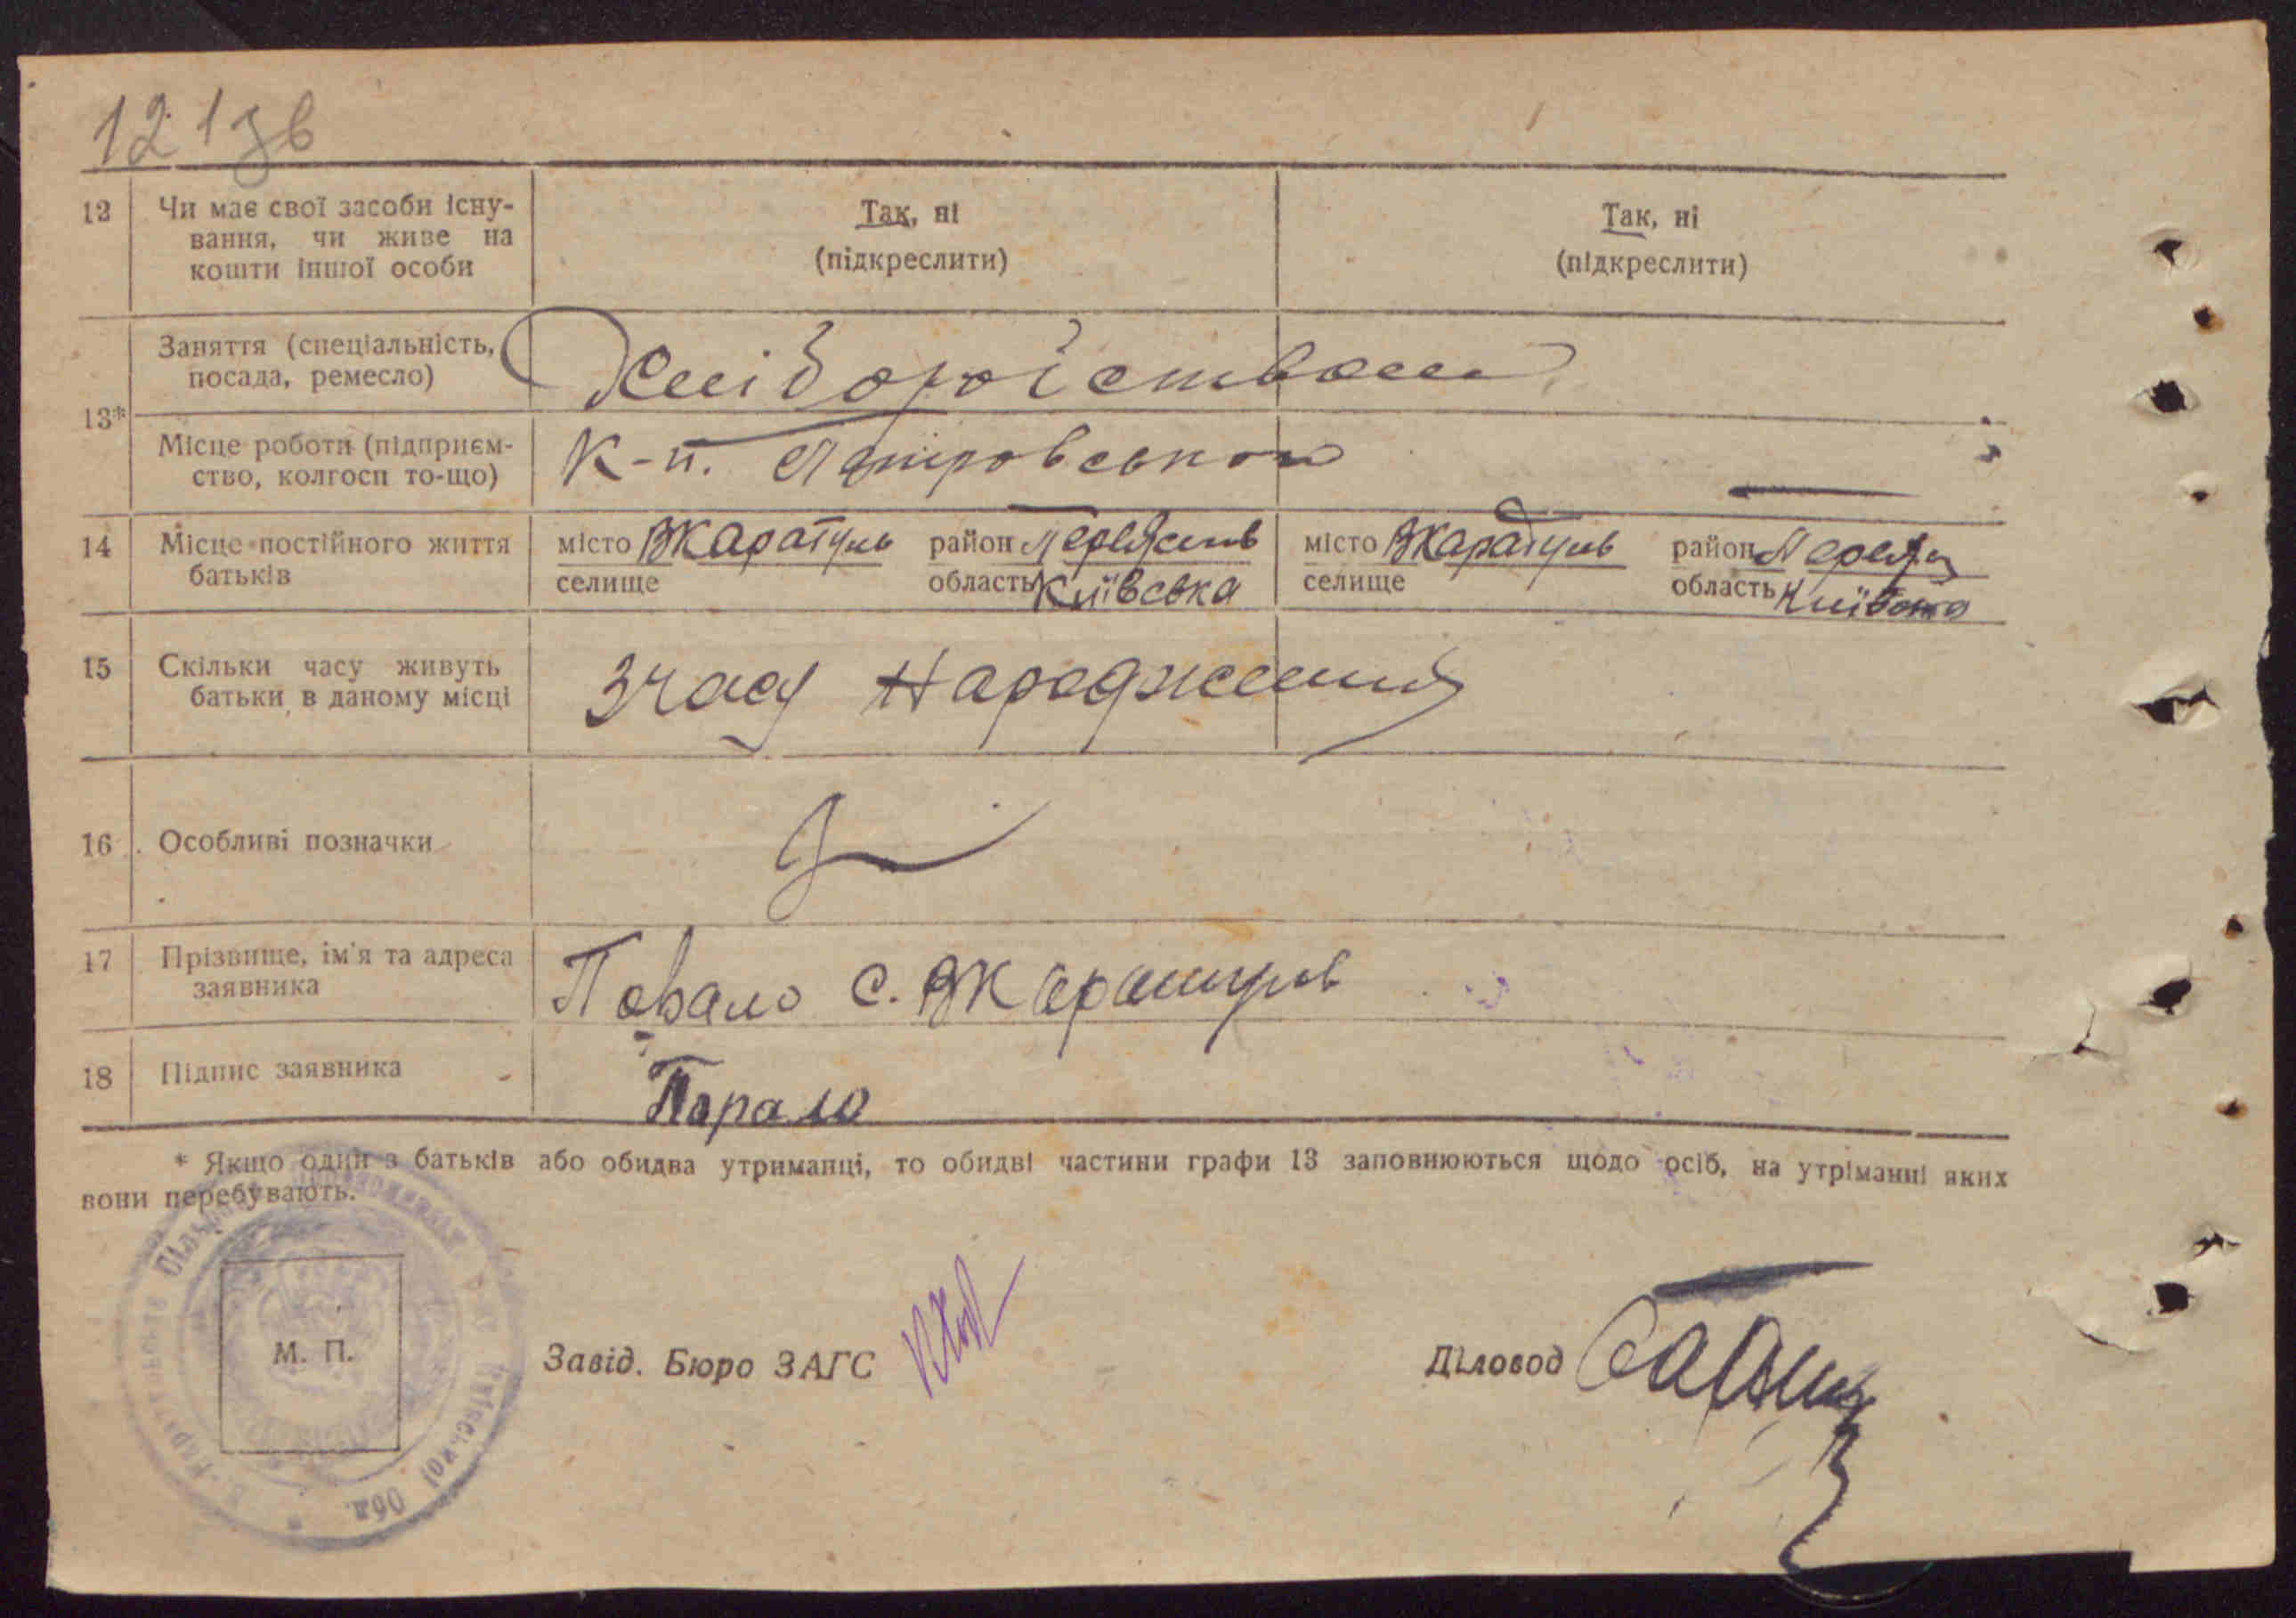 121зв
12 Чи має свої засоби існу-
вання, чи живе на
кошти іншої особи
Так, ні
(підкреслити)
Так, ні
(підкреслити)
13*
Заняття (спеціальність,
посада, ремесло)
Хліборобством
Місце роботи (підприєм-
ство, колгосп то-що)
К-п. Петровського
14 Місце постійного життя
батьків
місто ВКаратуль район
селище область Київська
місто ВКаратуль район
селище область Київська
15 Скільки часу живуть
батьки в даному місці
З часу Народження
16 Особливі позначки
17 Прізвище, ім'я та адреса
заявника
Повало с. ВКаратуль
18 Підпис заявника
* Якщо один з батьків або обидва утриманці, то обидві частини графи 13 заповнюються щодо осіб, на утріманні яких
вони перебувають.
М. П.
Завід. Бюро ЗАГС
Діловод
Київської Обл.